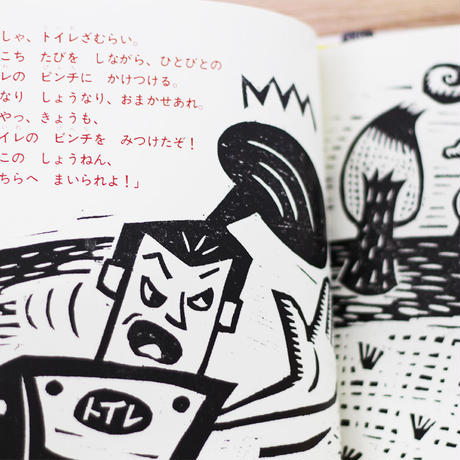 しゃ、トイレざむらい。
こち たびを しながら、ひとびとの
レの ピンチに かけつける。
なり しょうなり、おまかせあれ。
やっ、きょうも、
イレの ピンチを みつけたぞ！
この しょうねん、
ちらへ まいられよ！」
トイレ